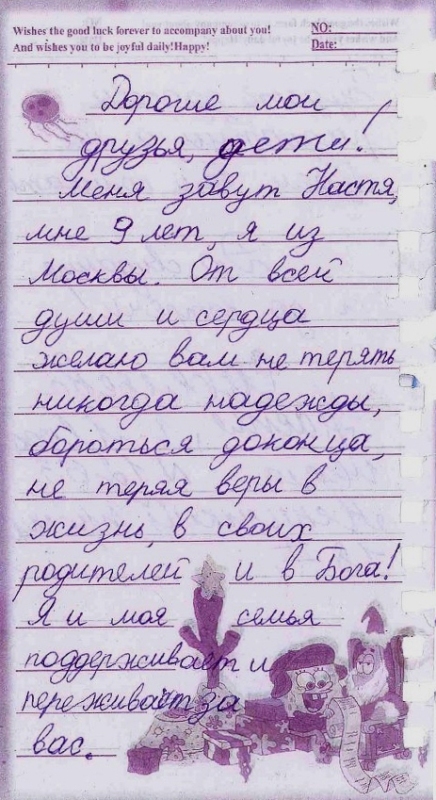 Wishes the good luck forever to accompany about you!
And wishes you to be joyful daily!Happy!
NO:
Date:
Дорогие мои
друзья, дети!
Меня зовут Настя,
мне 9 лет, я из
Москвы. От всей
души и сердца
желаю вам не терять
никогда надежды,
бороться доконца,
не теряя веры в
жизнь, в своих
родителей и в Бога!
Я и моя семья
поддерживает и
переживает за
вас.